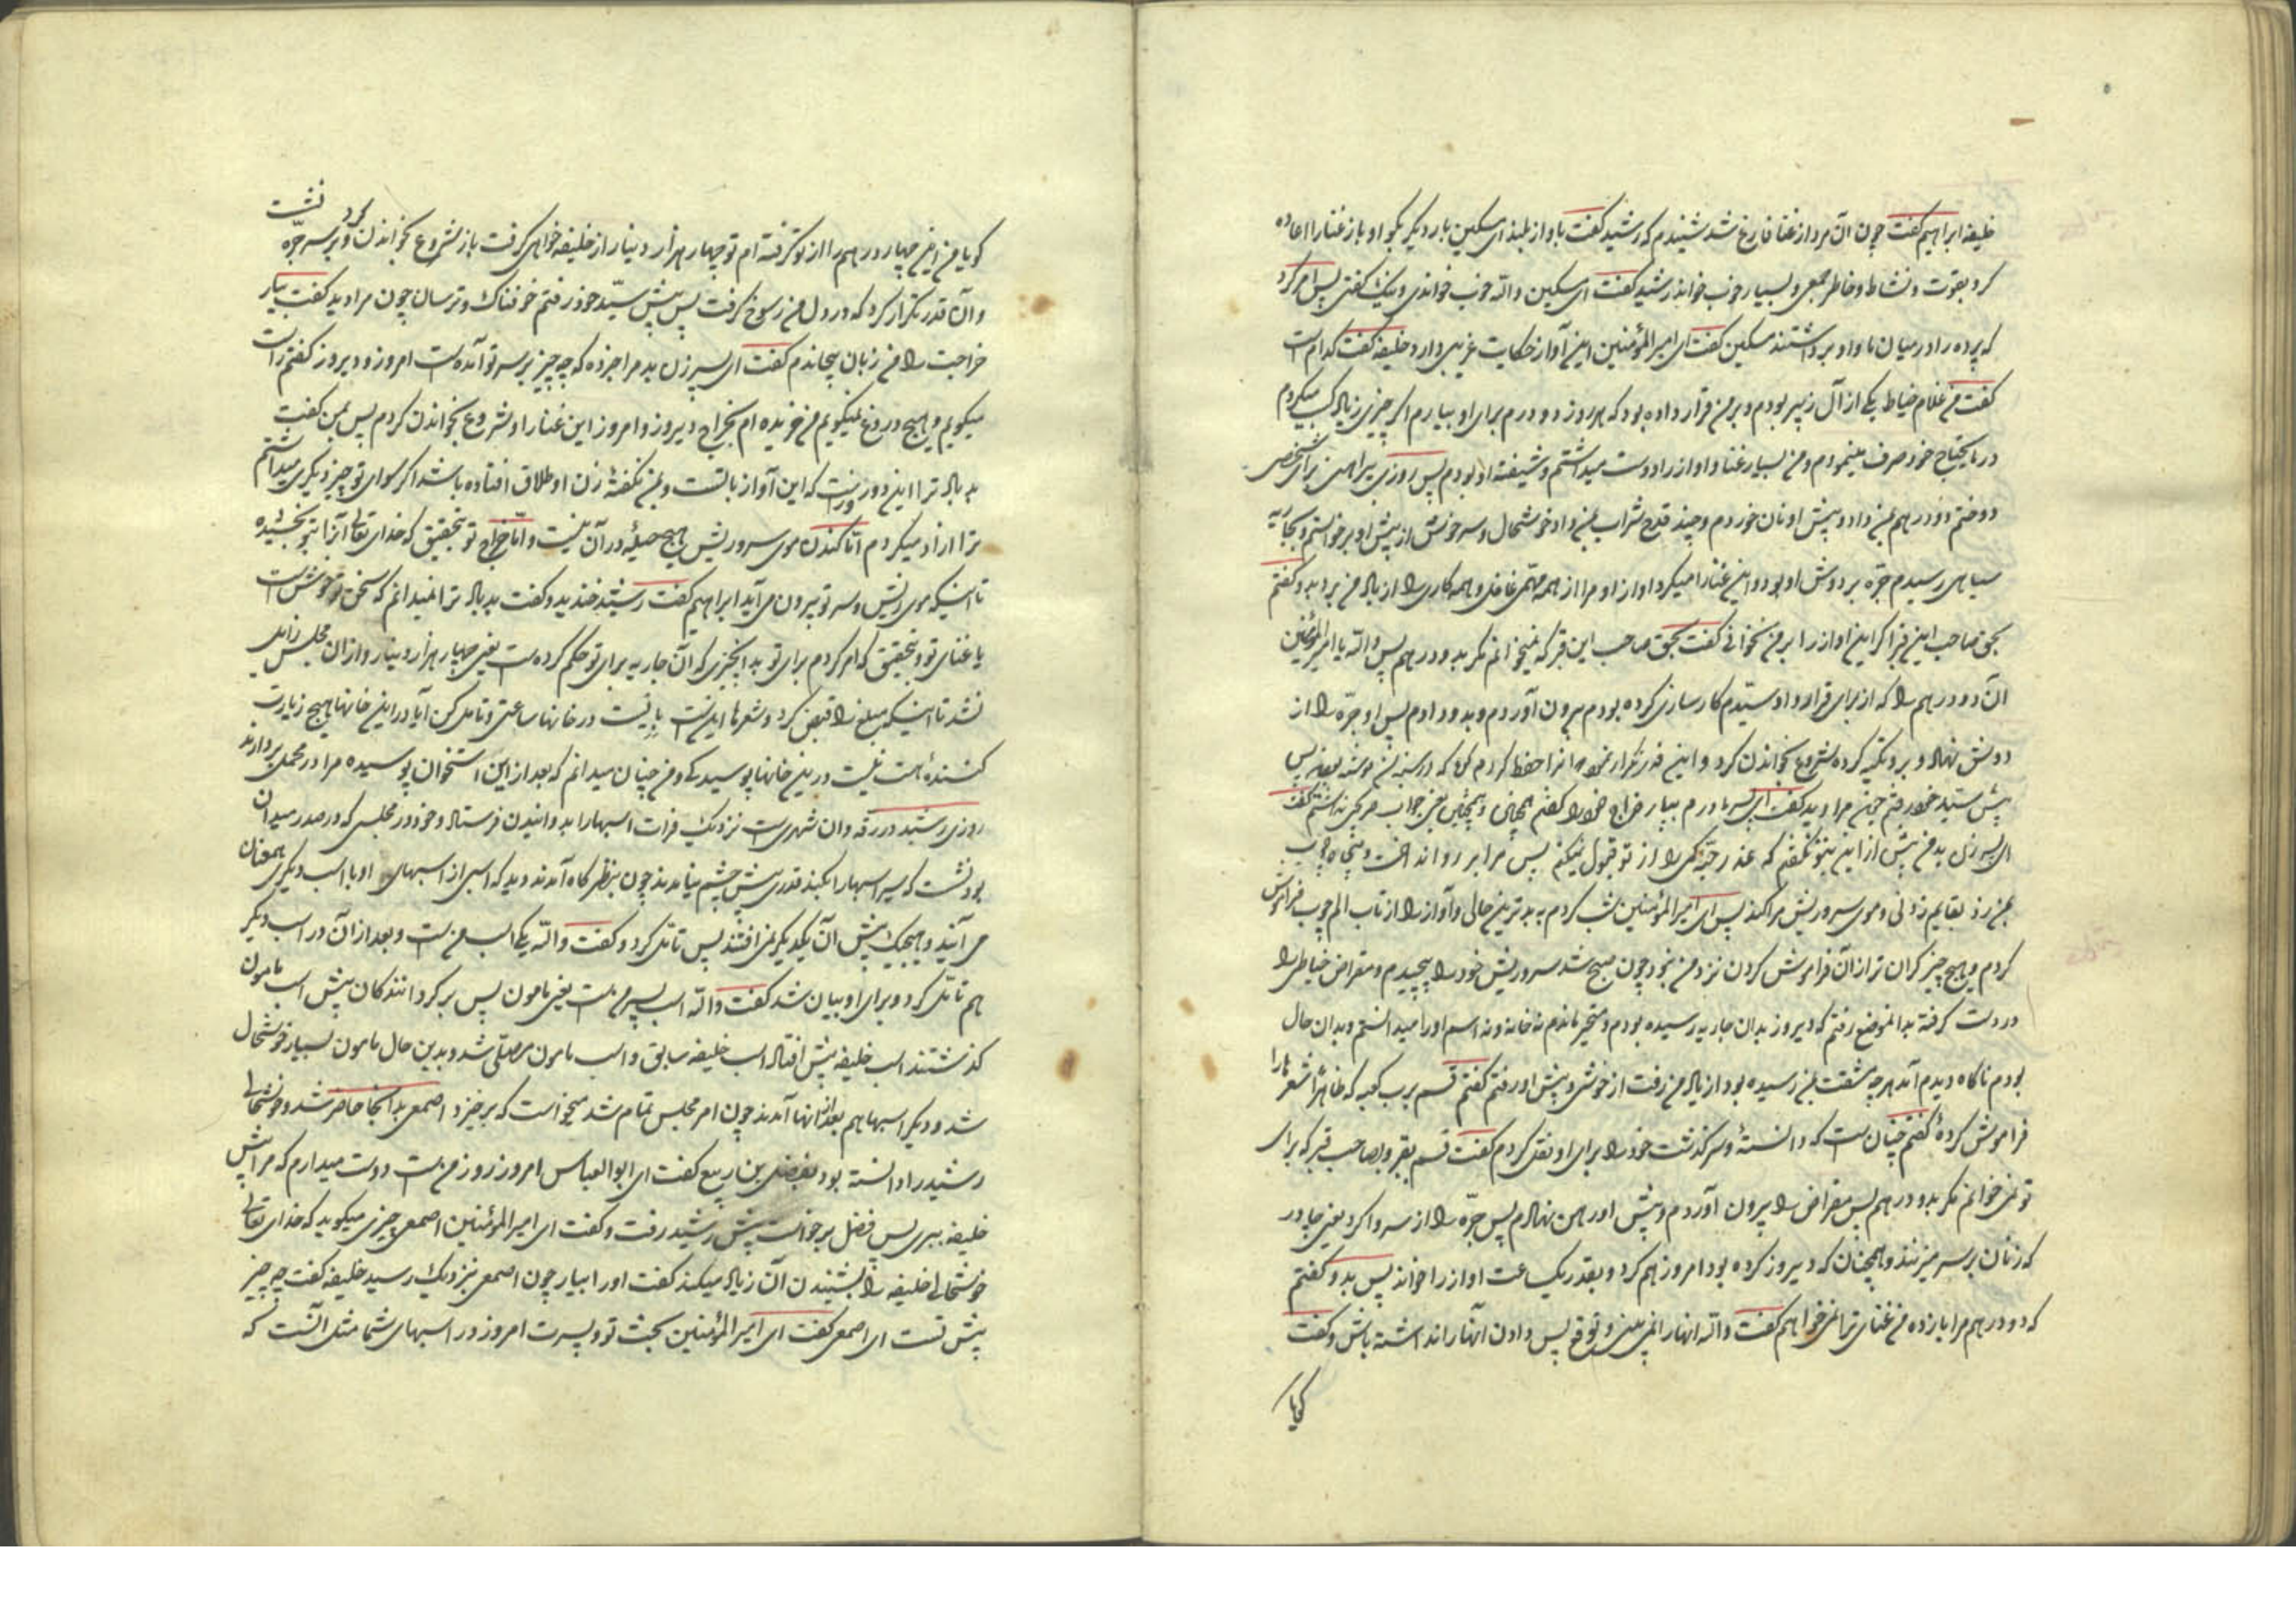 خلیفه ابراهیم گفت چون آن مرد از غنا فارغ شد شنیدم که رشید گفت بآواز بلند ای مسکین بار دیگر بگو او باز غنا را اعاده
کرد بقوت و نشاط و خاطر جمعی و بسیار خوب خواند رشید گفت ای مسکین والله خوب خواندی و نیک گفتی پس امر کرد
که پرده را در میان ما و او برداشتند مسکین گفت ای امیر المؤمنین این آواز حکایت غریبی دارد خلیفه گفت کدام است
گفت من غلام خیاط یکی از آل زبیر بودم و بر من قرار داده بود که هر روز دو درم برای او بیارم اگر چیزی زیاد کسب میکردم
در مایحتاج خود صرف مینمودم و من بسیار غنا و آواز را دوست میداشتم و شیفته او بودم پس روزی پیراهنی برای شخصی
دوختم دو درهم بمن داد و پیش او نان خوردم و چند قدح شراب بمن داد خوشحال و سرخوش از پیش او برخواستم و بجاریه
سیاهی رسیدم جرّه بر دوش او بود و این غنا را میکرد آواز او مرا از همه مهمی غافل و همه کاری را از یاد من برد بدو گفتم
بحق صاحب این قبر اگر این آواز را بر من نخوانی گفت بحق صاحب این قبر که نمیخوانم مگر بدو درهم پس والله یا امیر المؤمنین
آن دو درهم را که از برای قرارداد سیّدم کارسازی کرده بودم بیرون آوردم و بدو دادم پس او جرّه را از
دوش نهاد و برو تکیه کرده شروع بخواندن کرد و این قدر تکرار نمود آنرا حفظ کردم گویا که در سینه من نوشته بود پس
پیش سیّد خود رفتم چون مرا دید گفت ای پسر مادرم بیار خراج خود را گفتم همچنان و همچنین یعنی جواب هرگز نداشتم گفت
ای پسر زن بد من پیش ازاین بتو نگفتم که عذر حبّه کمی را از تو قبول نمیکنم پس مرا بر رو انداخت و پنجاه چوب
بمن زد بقایم زدنی و موی سر و ریش مرا کند پس ای امیر المؤمنین شب کردم به بدترین حالی و آواز را از تاب الم چوب فراموش
کردم و هیچ چیز گران تر از آن فراموش کردن نزد من نبود چون صبح شد سر و ریش خود را پیچیدم و مقراض خیاطی را
در دست گرفته بدانموضع رفتم که دیروز بدان جاریه رسیده بودم و متحیر ماندم نه خانه و نه اسم او را میدانستم و بدان حال
بودم ناگاه دیدم آمد هر چه مشقت بمن رسیده بود از یاد من رفت از خوشی و پیش او رفتم گفتم قسم برب کعبه که ظاهرا شعرها را
فراموش کردهٔ گفتم چنان است که دانستهٔ و سرگذشت خود را برای او نقل کردم گفت قسم بقبر و بصاحب قبر که برای
تو نمی خوانم مگر بدو درهم پس مقراض را بیرون آوردم و پیش او رهن نهادم پس جرّه را از سر وا کرد یعنی چادر
که زنان بر سر میزنند و همچنان که دیروز کرده بود امروز هم کرد و بقدر یکساعت آواز را خواند پس بدو گفتم
که دو درهم مرا باز ده من غنای ترا نمی خواهم گفت والله آنها را نمی بینی و توقع پس دادن آنها را نداشته باش و گفت
گویا
گویا من این چهار درهم را از تو گرفته ام تو چهار هزار دینار از خلیفه خواهی گرفت باز شروع بخواندن کرد و بر سر جرّه نشست
و آن قدر تکرار کرد که در دل من رسوخ گرفت پس پیش سیّد خود رفتم خوفناک و ترسان چون مرا دید گفت بیار
خراجت را من زبان پیچاندم گفت ای پسر زن بد مرا خبر ده که چه چیز بر سر تو آمده است امروز و دیروز گفتم راست
میگویم و هیچ دروغ نمیگویم من خریده ام بخراج دیروز و امروز این غنا را و شروع بخواندن کردم پس بمن گفت
بد باد ترا این دو روز است که این آواز با تست و بمن نگفتهٔ زن او طلاق افتاده باشد اگر سوای تو چیز دیگری میداشتم
ترا آزاد میکردم اما کندن موی سر و ریش هیچ حیلهٔ در آن نیست و امّا خراج تو بتحقیق که خدای تعالی آنرا بتو بخشیده
تا اینکه موی ریش و سر تو بیرون می آید ابراهیم گفت رشید خندید و گفت بد باد ترا نمیدانم که سخن تو خوش است
یا غنای تو و بتحقیق که امر کردم برای تو بدآنچیزی که آن جاریه برای تو حکم کرده است یعنی چهار هزار دینار و از آن مجلس زایل
نشد تا اینکه مبلغ را قبض کرد و شعرها اینست بایست در خانها ساعتی و تامل کن آیا در این خانها هیچ زیارت
کننده است نیست درین خانها پوسیدگی و من چنان میدانم که بعد از این استخوان پوسیده مرا در محملی بردارند
روزی رشید در رقّه و آن شهریست نزدیک فرات اسبها را بدوانیدن فرستاد و خود در مجلسی که در صدر میدان
بود نشست که سیر اسبها را بکند قدری پیش چشم نیامدند چون بنظر گاه آمدند دید که اسبی از اسبهای او با اسب دیگری همعنان
می آیند و هیچیک پیش آن یکدیگر نمی افتند پس تامّل کرد و گفت والله یکی اسب من است و بعد از آن در اسب دیگر
هم تامّل کرد و برای او بیان شد گفت والله اسب پسر من است یعنی مامون پس برگردانندگان پیش اسب مامون
گذشتند اسب خلیفه پیش افتاد اسب خلیفه سابق و اسب مامون مصلّی شد و بدین حال مامون بسیار خوشحال
شد و دیگر اسبها هم بعد از آنها آمدند چون امر مجلس تمام شد میخواست که برخیزد اصمعی بدانجا حاضر شد و خوشحالی
رشید را دانسته بود بفضل بن ربیع گفت ای ابوالعباس امروز روز من است دوست میدارم که مرا پیش
خلیفه ببری پس فضل برخواست پیش رشید رفت و گفت ای امیر المؤمنین اصمعی چیزی میگوید که خدای تعالی
خوشحالی خلیفه را بشنیدن آن زیاد میکند گفت او را بیار چون اصمعی نزدیک رسید خلیفه گفت چه چیز
پیش تست ای اصمعی گفت ای امیر المؤمنین بحث تو و پسرت امروز در اسبهای شما مثل آنست که